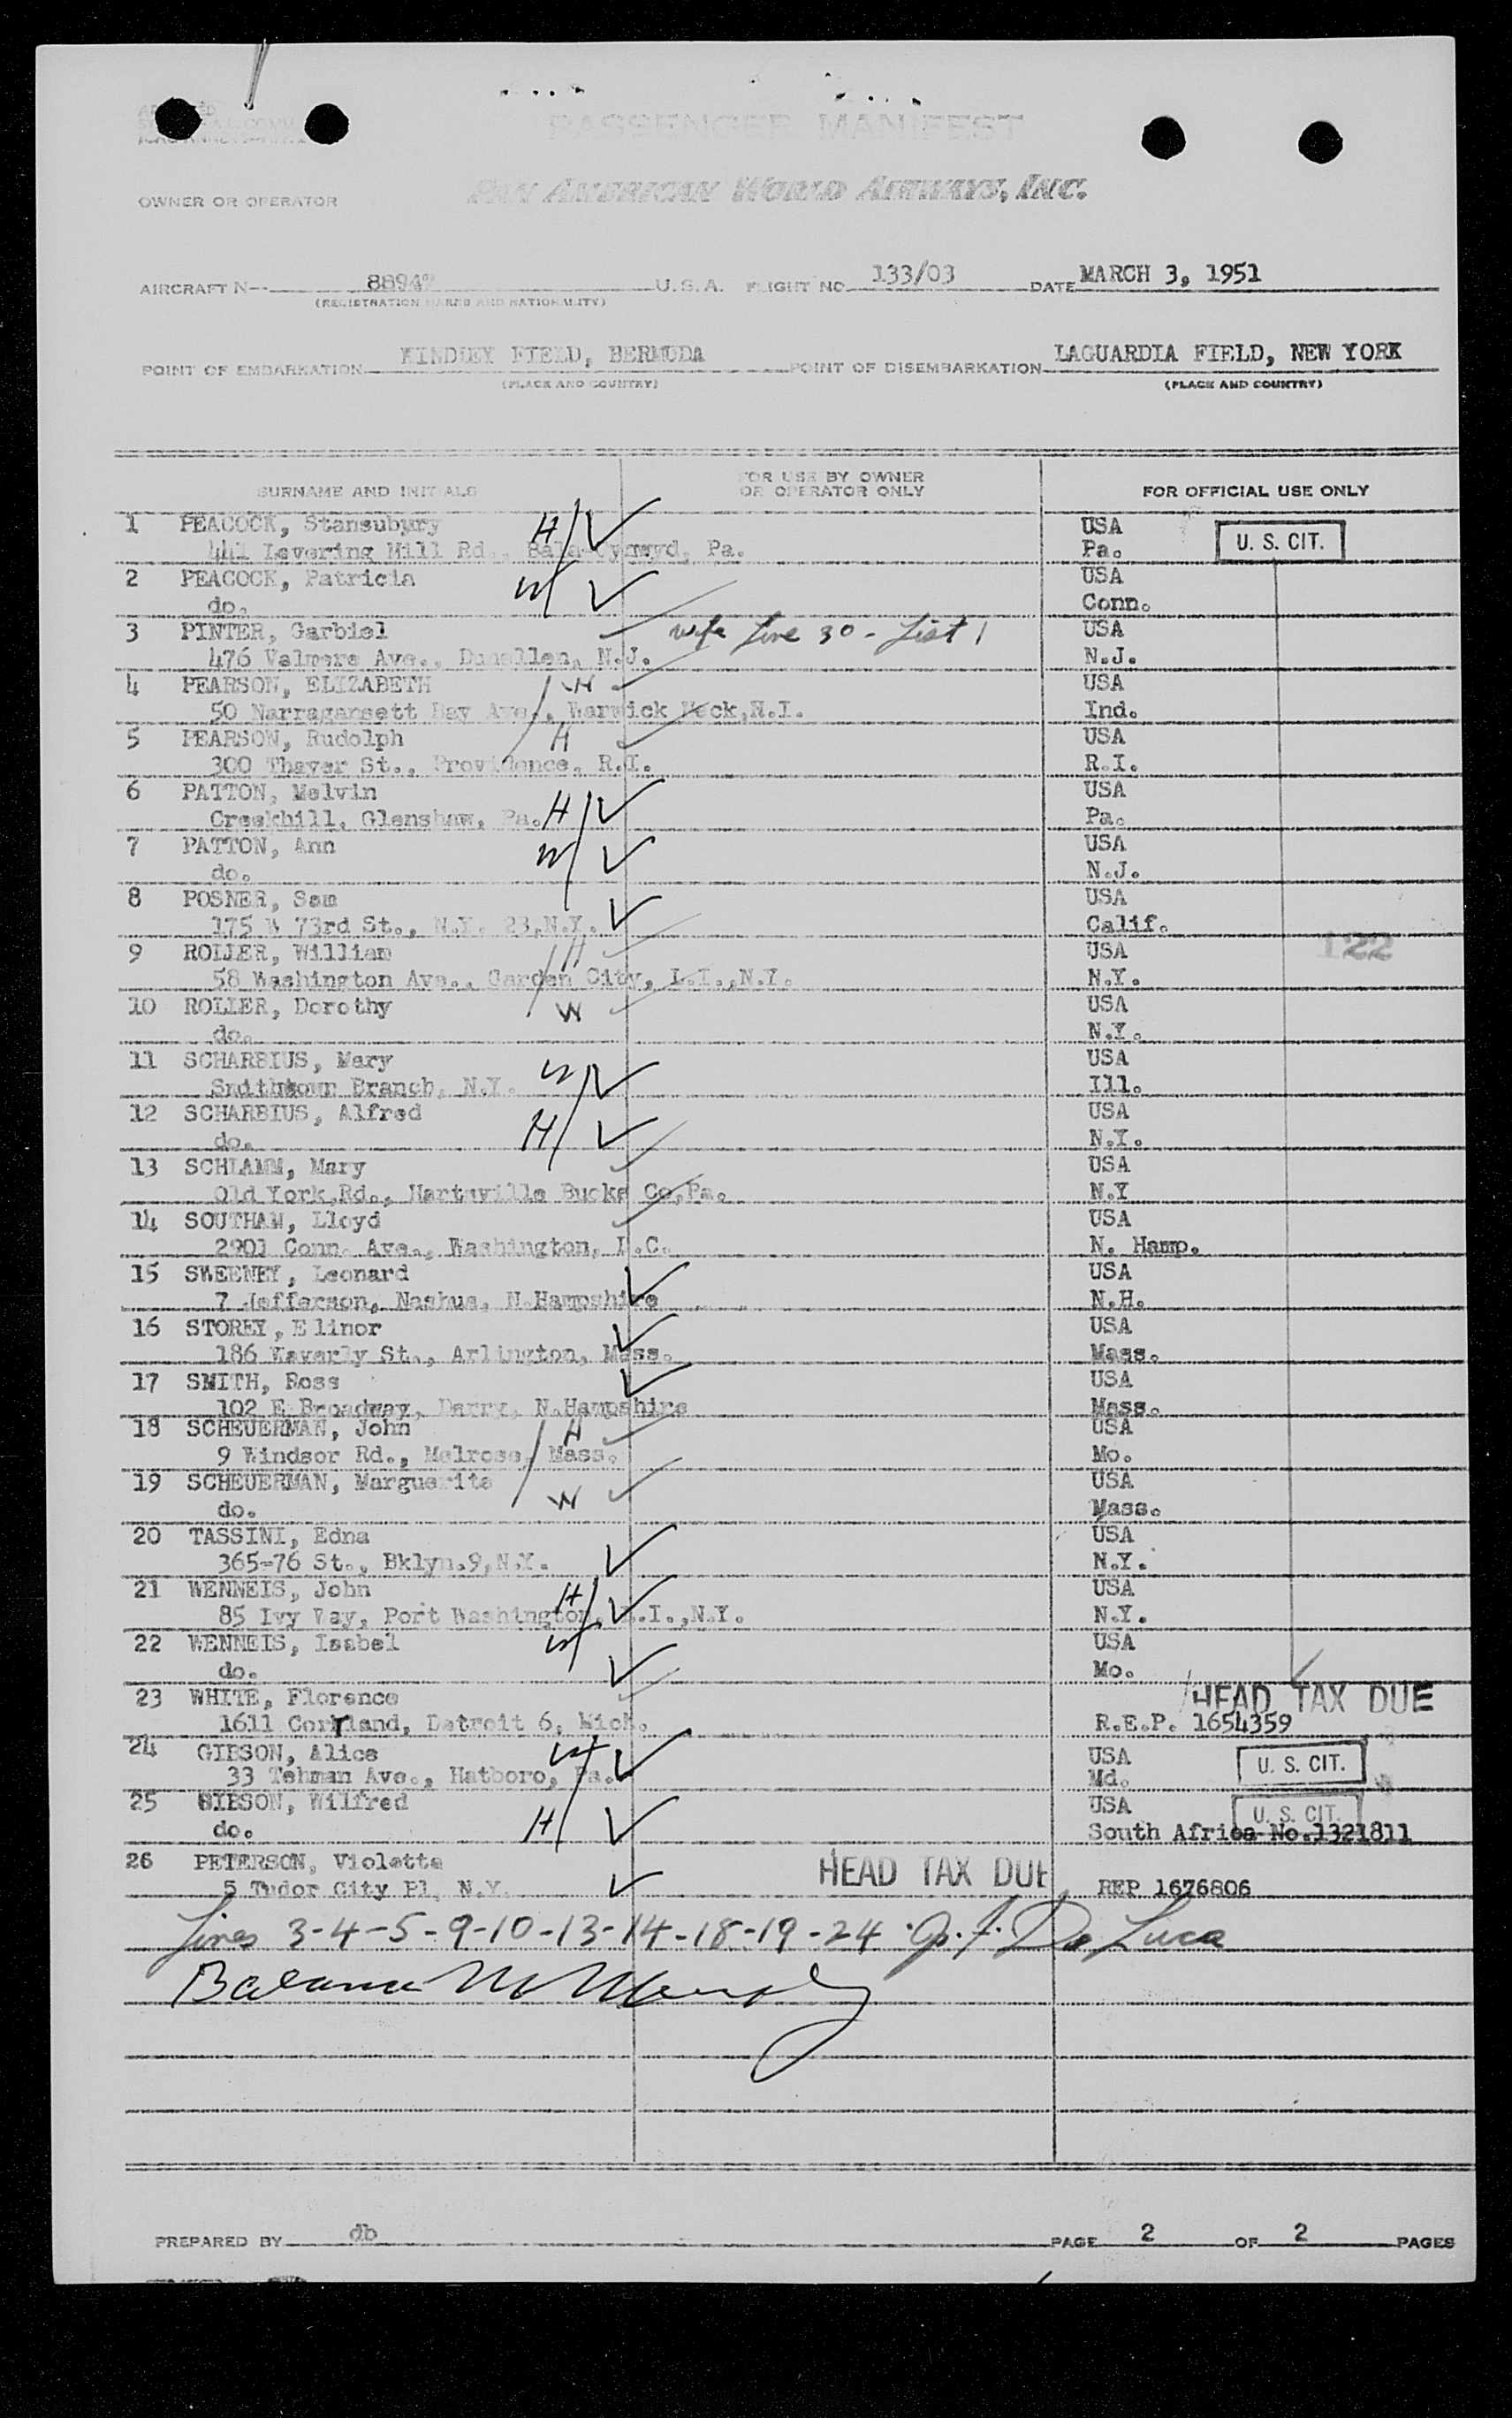 PASSENGER MANIFEST
OWNER OR OPERATOR
PAN AMERICAN WORLD AIRWAYS, INC.
AIRCRAFT N-- 8894 U.S.A. FLIGHT NO. 133/03 DATE MARCH 3, 1951
(REGISTRATION MARKS AND NATIONALITY)
POINT OF EMBARKATION KINDLEY FIELD, BERMUDA POINT OF DISEMBARKATION LAGUARDIA FIELD, NEW YORK
(PLACE AND COUNTRY) (PLACE AND COUNTRY)
SURNAME AND INITIALS FOR USE BY OWNER OR OPERATOR ONLY FOR OFFICIAL USE ONLY
1 PEACOCK, Stansubury H USA
441 Levering Mill Rd., Bala-Cynwyd, Pa. Pa. U. S. CIT.
2 PEACOCK, Patricia W USA
do. Conn.
3 PINTER, Garbiel wife Line 30 - List 1 USA
476 Valmere Ave., Dunellen, N.J. N.J.
4 PEARSON, ELIZABETH W USA
50 Narragansett Bay Ave., Warwick Neck, R.I. Ind.
5 PEARSON, Rudolph H USA
300 Thayer St., Providence, R.I. R.I.
6 PATTON, Melvin H USA
Creekhill, Glenshaw, Pa. Pa.
7 PATTON, Ann W USA
do. N.J.
8 POSNER, Sam USA
175 W 73rd St., N.Y. 23, N.Y. Calif.
9 ROLLER, William H USA 122
58 Washington Ave., Garden City, L.I., N.Y. N.Y.
10 ROLLER, Dorothy W USA
do. N.Y.
11 SCHARBIUS, Mary W USA
Branch, N.Y. Ill.
12 SCHARBIUS, Alfred H USA
do. N.Y.
13 SCHLAMM, Mary USA
Old York Rd., Hartsville Bucks Co, Pa. N.Y
14 SOUTHAM, Lloyd USA
2901 Conn. Ave., Washington, D.C. N. Hamp.
15 SWEENEY, Leonard USA
7 Jefferson, Nashua, N.Hampshire N.H.
16 STOREY, Elinor USA
186 Waverly St., Arlington, Mass. Mass.
17 SMITH, Ross USA
102 E Broadway, Derry, N.Hampshire Mass.
18 SCHEUERMAN, John H USA
9 Windsor Rd., Melrose, Mass. Mo.
19 SCHEUERMAN, Marguerite W USA
do. Mass.
20 TASSINI, Edna USA
365-76 St., Bklyn.9, N.Y. N.Y.
21 WENNEIS, John H USA
85 Ivy Way, Port Washington, L.I., N.Y. N.Y.
22 WENNEIS, Isabel W USA
do. Mo.
23 WHITE, Florence HEAD TAX DUE
1611 Cortland, Detroit 6, Mich. R.E.P. 1654359
24 GIBSON, Alice W USA U. S. CIT.
33 Tehman Ave., Hatboro, Pa. Md.
25 GIBSON, Wilfred USA U. S. CIT.
do. H South Africa No.1321811
26 PETERSON, Violette HEAD TAX DUE
5 Tudor City Pl, N.Y. REP 1676806
Lines 3-4-5-9-10-13-14-18-19-24 De Luca
Balance
PREPARED BY db PAGE 2 OF 2 PAGES